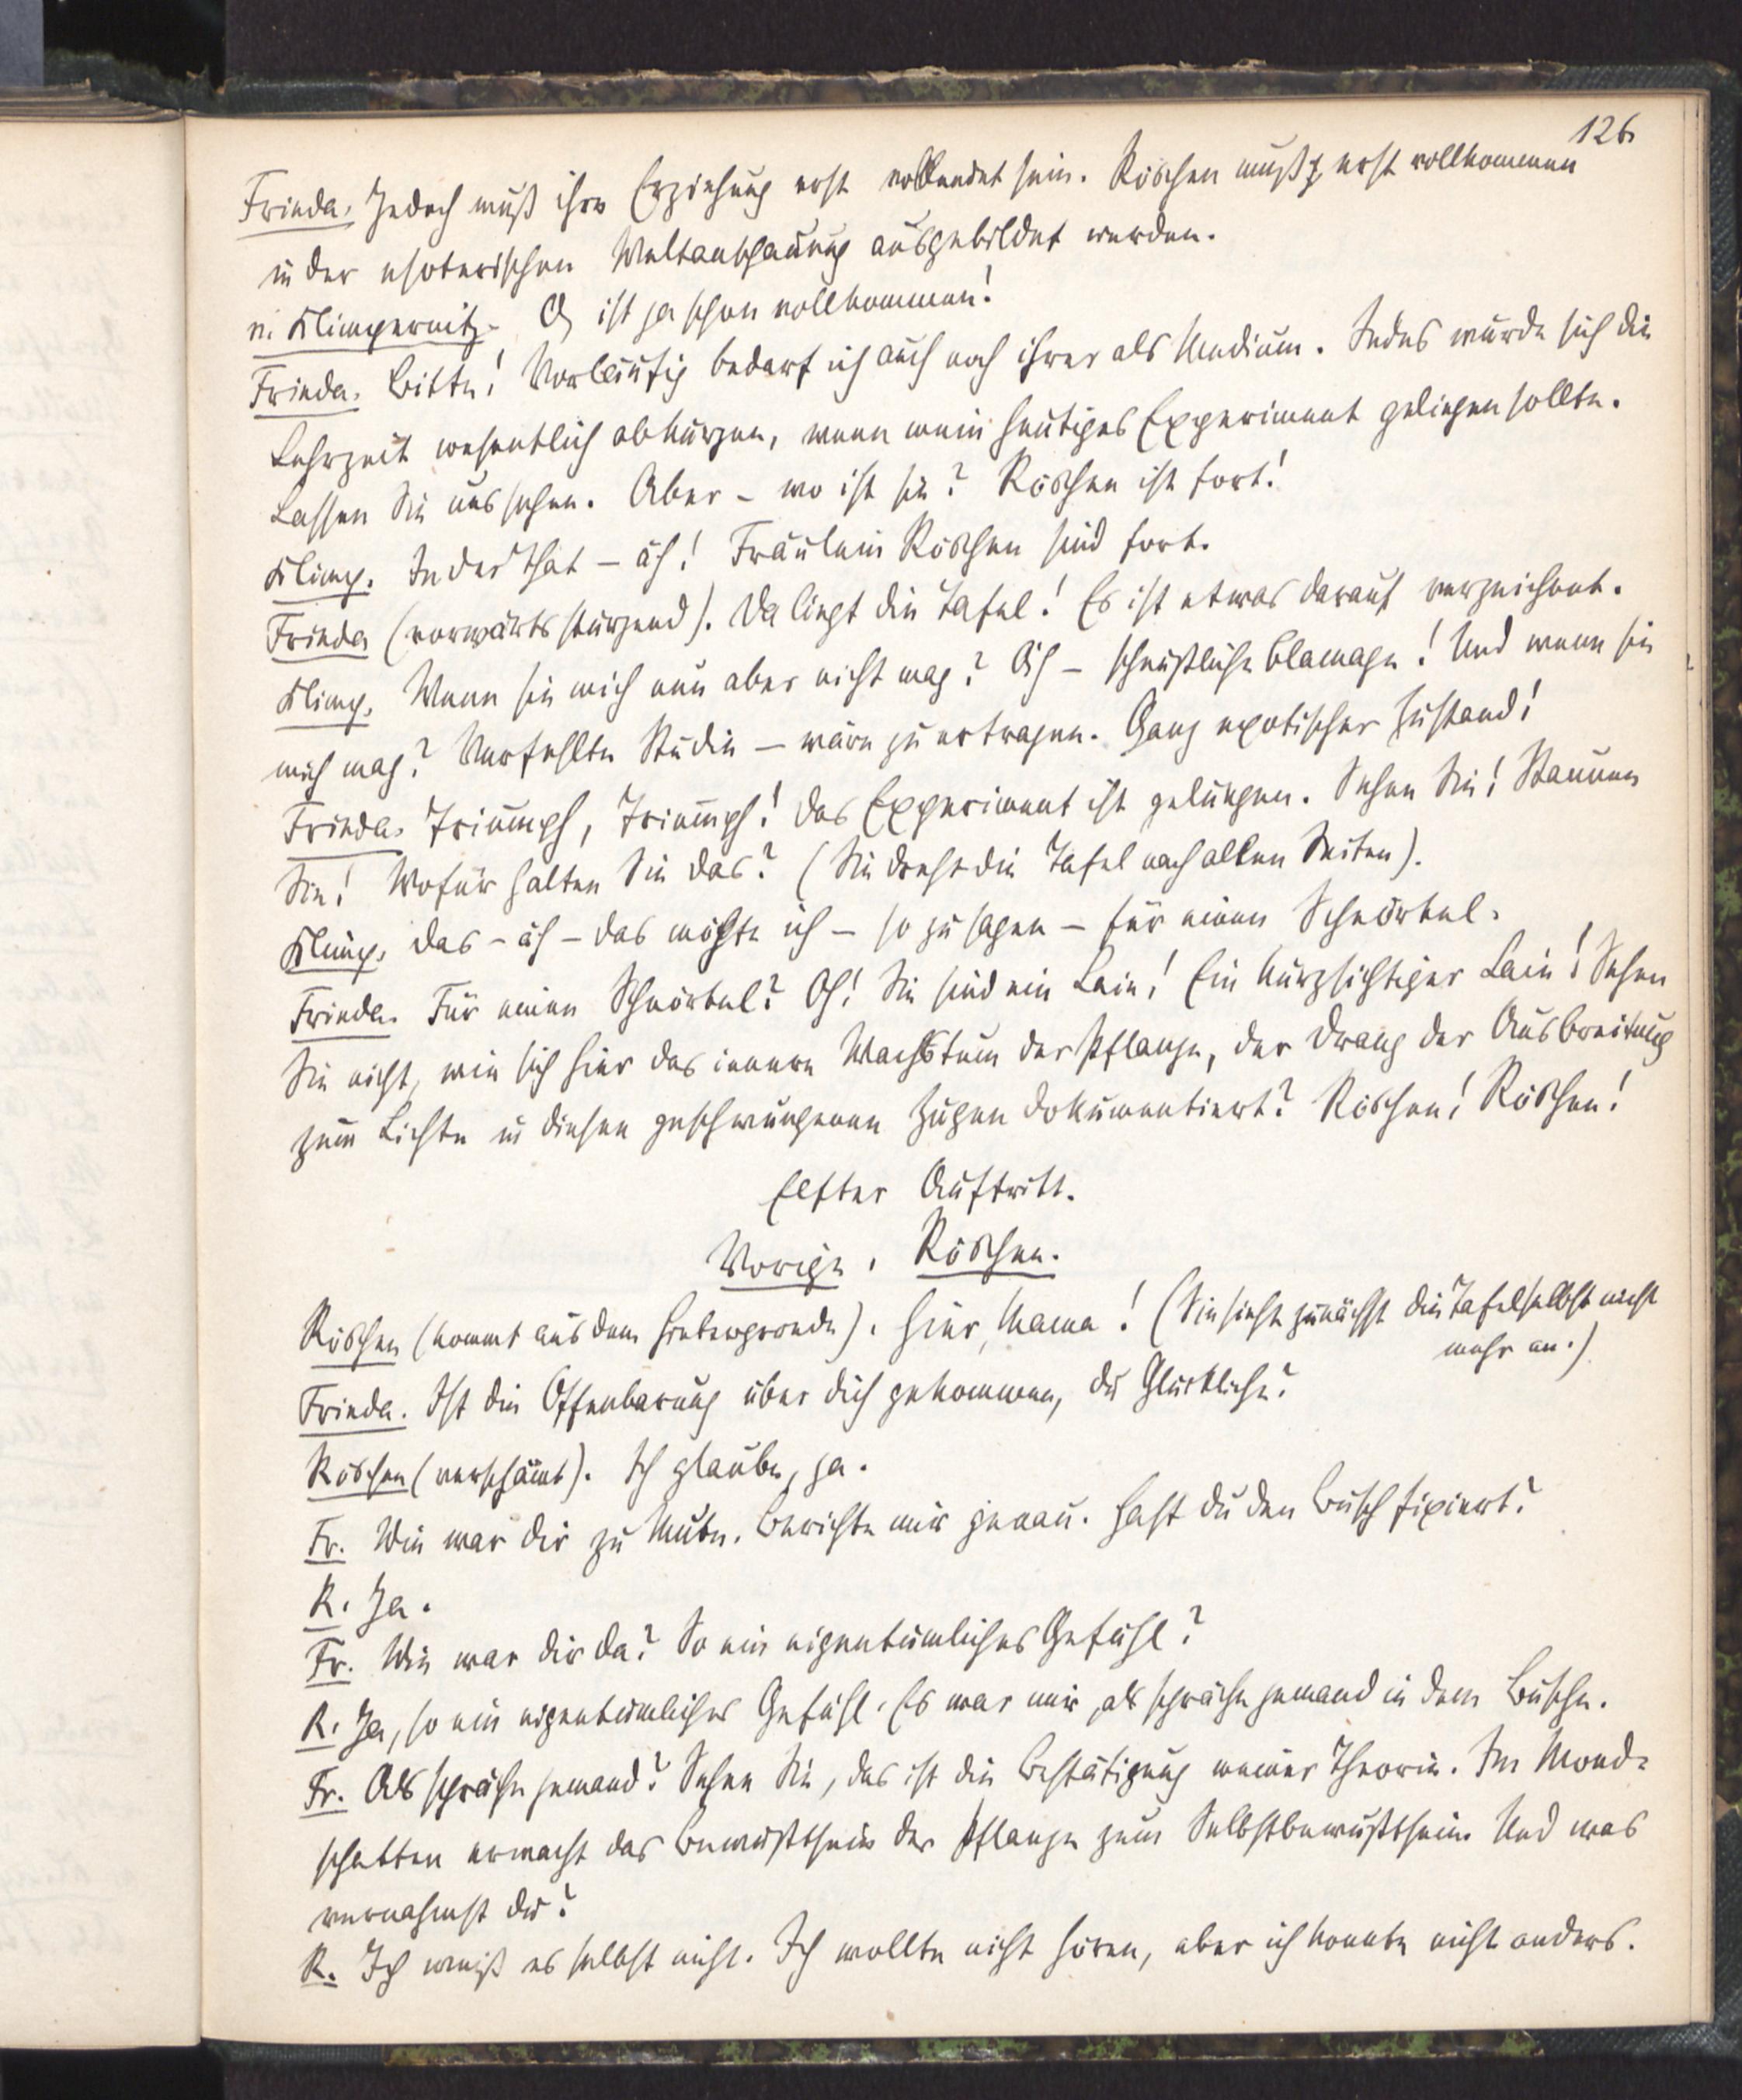 126.
Frieda. Jedoch muß ihre Erziehung erst vollendet sein. Röschen muß erst vollkommen
in der esoterischen Weltanschauung ausgebildet werden.
v. Klimpernitz. O, ist ja schon vollkommen!
Frieda. Bitte! Vorläufig bedarf ich auch noch ihrer als Medium. Indes würde sich die
Lehrzeit wesentlich abkürzen, wenn mein heutiges Experiment gelingen sollte.
Lassen Sie uns sehen. Aber – wo ist sie? Röschen ist fort!
Klimp. In der That – äh! Fräulein Röschen sind fort.
Frieda (vorwärts stürzend). Da liegt die Tafel! Es ist etwas darauf verzeichnet.
Klimp. Wenn sie mich nun aber nicht mag? Äh – scheußliche Blamage! Und wenn sie
mich mag? Verfehlte Studie – wäre zu ertragen. Ganz exotischer Zustand!
Frieda. Triumph, Triumph! Das Experiment ist gelungen. Sehen Sie! Staunen
Sie! Wofür halten Sie das? (Sie dreht die Tafel nach allen Seiten).
Klimp. Das – äh – das möchte ich – so zu sagen – für einen Schnörkel.
Frieda. Für einen Schnörkel? Oh! Sie sind ein Laie! Ein kurzsichtiger Laie! Sehen
Sie nicht, wie sich hier das innere Wachstum der Pflanze, der Drang der Ausbreitung
zum Lichte in diesen geschwungenen Zügen dokumentiert? Röschen! Röschen!
Elfter Auftritt.
Vorige. Röschen.
Röschen (kommt aus dem Hintergrunde). Hier, Mama! (Sie sieht zunächst die Tafel selbst nicht
mehr an.)
Frieda. Ist die Offenbarung über dich gekommen, du Glückliche?
Röschen (verschämt). Ich glaube, ja.
Fr. Wie war dir zu Mute. Berichte mir genau. Hast du den Busch fixiert?
R. Ja.
Fr. Wie war dir da? So ein eigentümliches Gefühl?
R. Ja, so ein eigentümliches Gefühl. Es war mir, als spräche jemand in dem Busche.
Fr. Als spräche jemand? Sehen Sie, das ist die Bestätigung meiner Theorie. Im Mond-
schatten erwacht das Bewußtsein der Pflanze zum Selbstbewußtsein. Und was
vernahmst du?
R. Ich weiß es selbst nicht. Ich wollte nicht hören, aber ich konnte nicht anders.